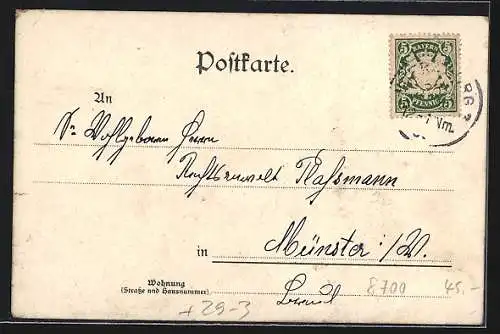 Postkarte.
BAYERN
5 5
5 PFENNIG 5
An
Sr Wohlgeboren Herrn
Rechtsanwalt Kassmann
in Münster i/W.
Wohnung
(Straße und Hausnummer)
8700 45.-
+ 29-3